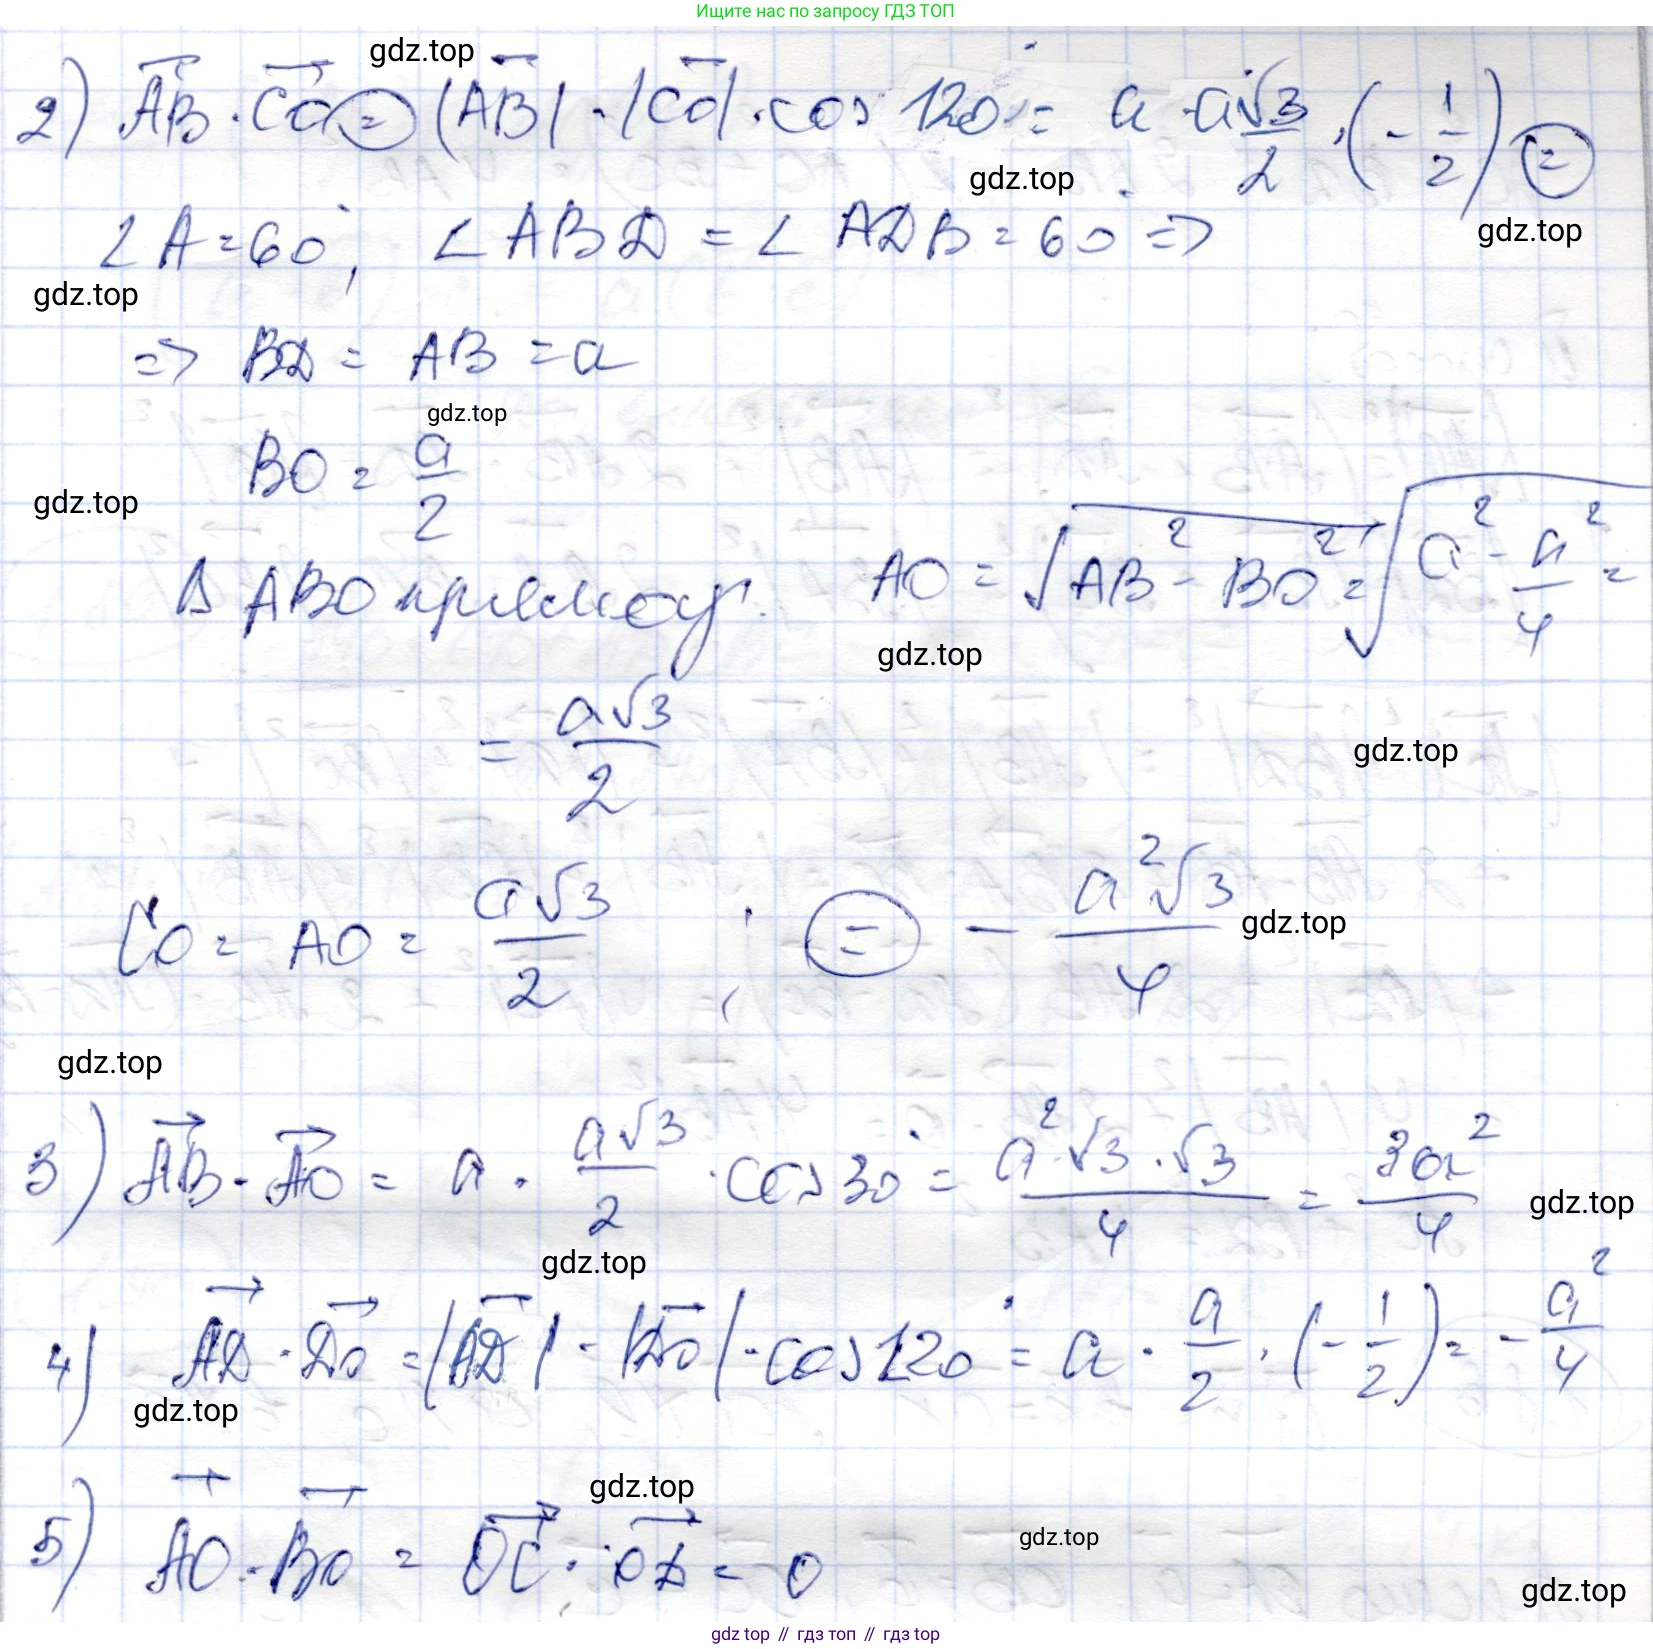 Ищите нас по запросу ГДЗ ТОП
gdz.top
2) AB · CO = |AB| · |CO| · cos 120° = a · a√3/2 · (-1/2) =
gdz.top
gdz.top
∠A = 60°, ∠ABD = ∠ADB = 60° =>
gdz.top
=> BD = AB = a
gdz.top
BO = a/2
gdz.top
Δ ABO прямоуг. AO = √AB² - BO² = √a² - a²/4 =
gdz.top
= a√3/2
gdz.top
CO = AO = a√3/2 ; = - a²√3/4
gdz.top
gdz.top
3) AB · AO = a · a√3/2 · cos 30° = a²√3·√3/4 = 3a²/4
gdz.top
gdz.top
4) AD · DO = |AD| · |DO| · cos 120° = a · a/2 · (-1/2) = - a²/4
gdz.top
gdz.top
5) AO · BO = OC · OD = 0
gdz.top
gdz.top
gdz top // гдз топ // gdz top